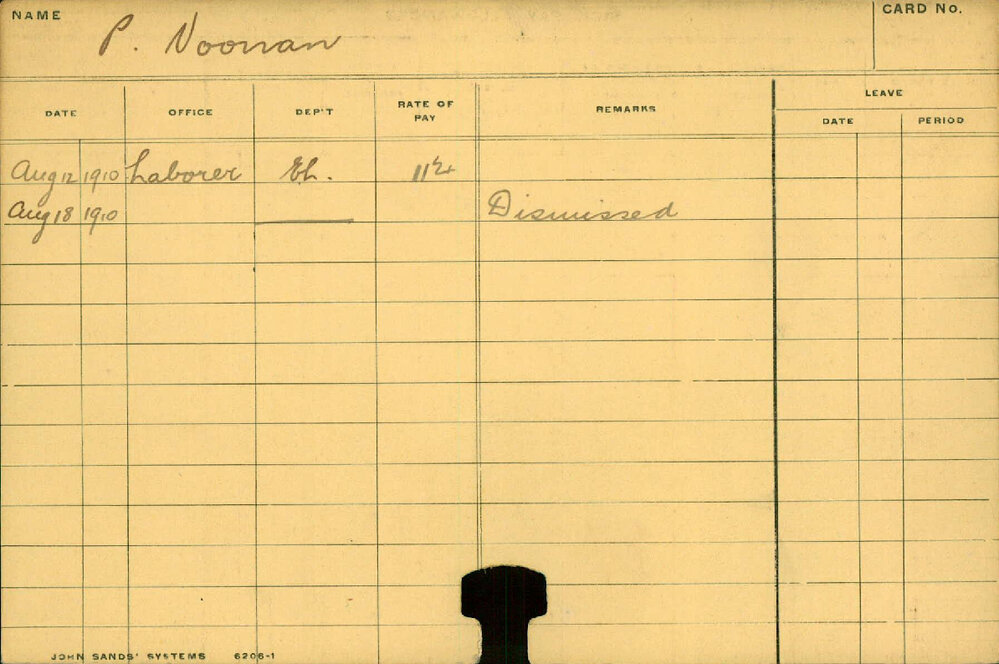 NAME P. Noonan CARD No.
DATE OFFICE DEP'T RATE OF PAY REMARKS LEAVE
DATE PERIOD
Aug 12 1910 Laborer
Aug 18 1910 Dismissed
JOHN SANDS' SYSTEMS 6206-1